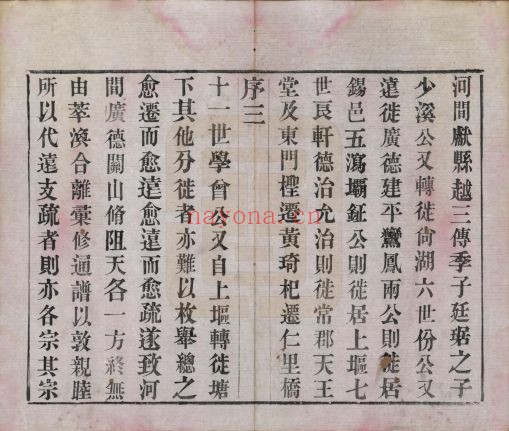 河間獻縣越三傳季子廷琚之子
少溪公又轉徙尙湖六世份公又
遠徙廣德建平鸞鳳兩公則徙居
錫邑五瀉壩鉦公則徙居上塸七
世艮軒德治允治則徙常郡天王
堂及東門㯬遷黃琦杞遷仁里橋
序三
十一世學會公又自上塸轉徙塘
下其他分徙者亦難以枚舉總之
愈遷而愈遠愈遠而愈疏遂致河
間廣德關山脩阻天各一方終無
由萃渙合離彙修通譜以敦親睦
所以代遠支疏者則亦各宗其宗
nayona.cn